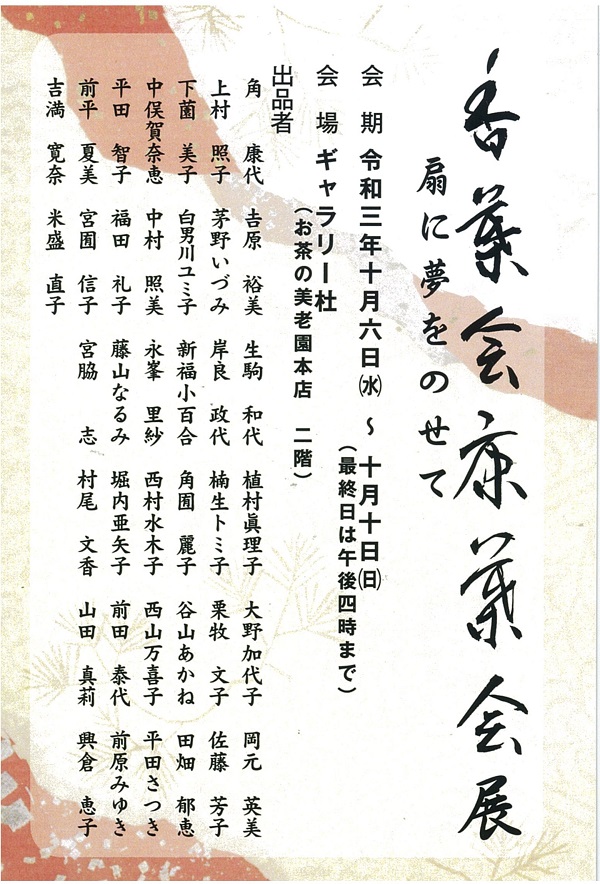 香葉会康葉会展
扇に夢をのせて
会期 令和三年十月六日㈬ ～ 十月十日㈰
（最終日は午後四時まで）
会場 ギャラリー杜
（お茶の美老園本店 二階）
出品者
角 康代 吉原 裕美 生駒 和代 植村眞理子 大野加代子 岡元 英美
上村 照子 茅野いづみ 岸良 政代 楠生トミ子 栗牧 文子 佐藤 芳子
下薗 美子 白男川ユミ子 新福小百合 角囿 麗子 谷山あかね 田畑 郁恵
中俣賀奈恵 中村 照美 永峯 里紗 西村水木子 西山万喜子 平田さつき
平田 智子 福田 礼子 藤山なるみ 堀内亜矢子 前田 泰代 前原みゆき
前平 夏美 宮囿 信子 宮脇 志 村尾 文香 山田 真莉 興倉 恵子
吉満 寛奈 米盛 直子